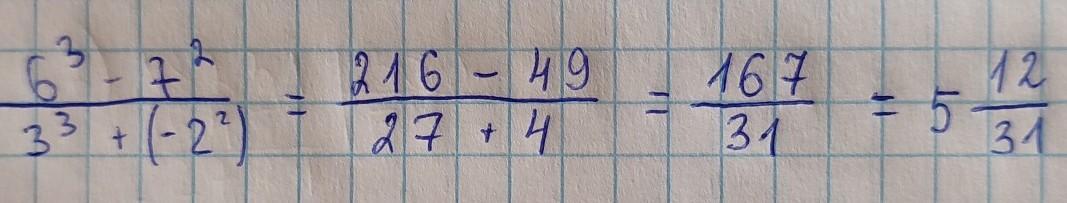 6³ - 7² / 3³ + (-2²) = 216 - 49 / 27 + 4 = 167 / 31 = 5 12/31